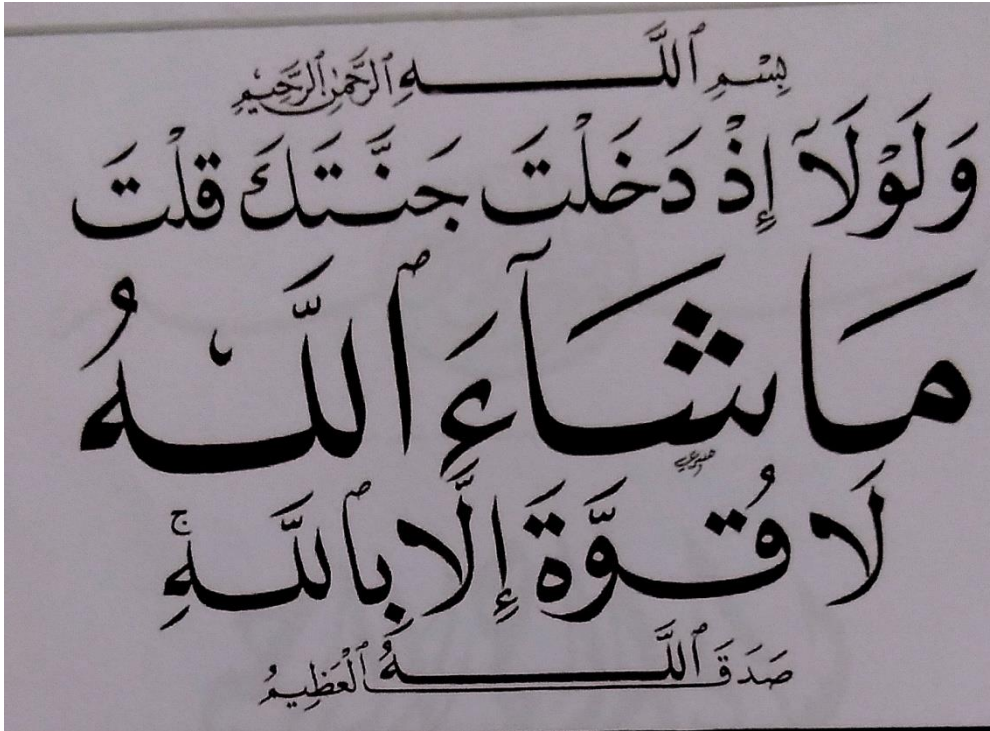 بِسْمِ ٱللَّهِ ٱلرَّحْمَٰنِ ٱلرَّحِيمِ
وَلَوْلَآ إِذْ دَخَلْتَ جَنَّتَكَ قُلْتَ
مَا شَآءَ ٱللَّهُ
لَا قُوَّةَ إِلَّا بِٱللَّهِ ۚ
صَدَقَ ٱللَّهُ ٱلْعَظِيمُ